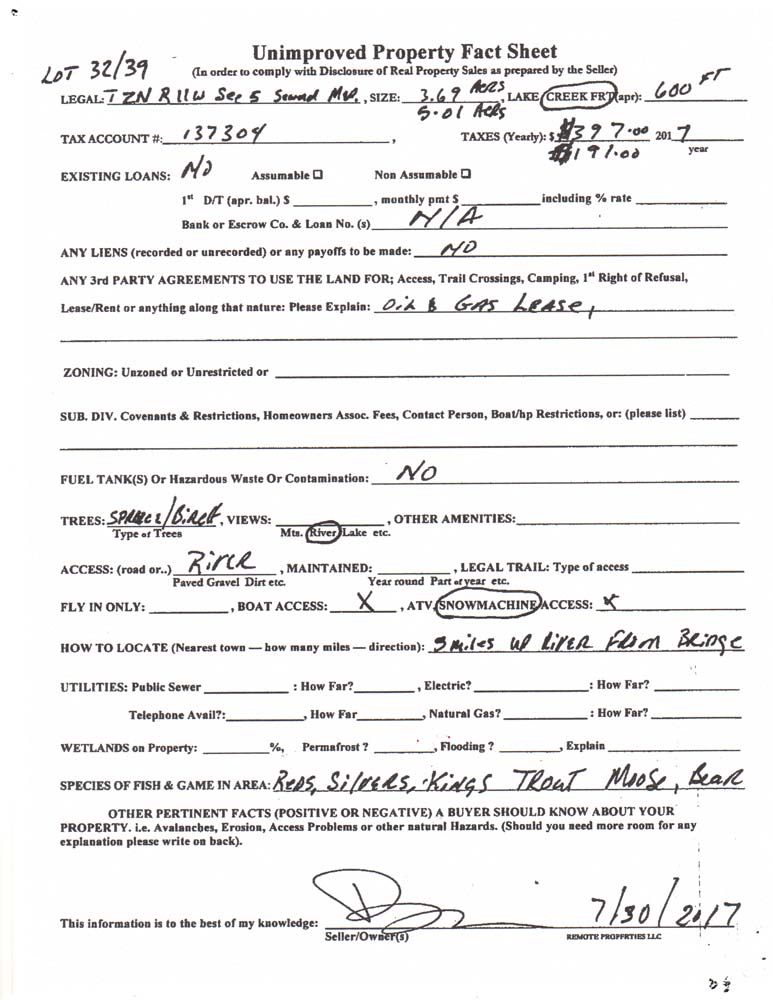 Unimproved Property Fact Sheet
LOT 32/39
(In order to comply with Disclosure of Real Property Sales as prepared by the Seller)
LEGAL: T 2N R 11W Sec 5 Seward Md, SIZE: 3.69 Acrs, LAKE CREEK FRT(apr): 600 FT
5.01 Acrs
TAX ACCOUNT #: 137304, TAXES (Yearly): $ 397.00 2017
year
191.00
EXISTING LOANS: NO Assumable ❑ Non Assumable ❑
1st D/T (apr. bal.) $ ____________, monthly pmt $ ____________ including % rate ____________
Bank or Escrow Co. & Loan No. (s) N/A
ANY LIENS (recorded or unrecorded) or any payoffs to be made: NO
ANY 3rd PARTY AGREEMENTS TO USE THE LAND FOR; Access, Trail Crossings, Camping, 1st Right of Refusal,
Lease/Rent or anything along that nature: Please Explain: Oil & GAS Lease,
ZONING: Unzoned or Unrestricted or ____________
SUB. DIV. Covenants & Restrictions, Homeowners Assoc. Fees, Contact Person, Boat/hp Restrictions, or: (please list) ________
FUEL TANK(S) Or Hazardous Waste Or Contamination: NO
TREES: Spruce/Birch, VIEWS: ____________, OTHER AMENITIES: ____________
Type of Trees Mts. River Lake etc.
ACCESS: (road or..) River, MAINTAINED: __________, LEGAL TRAIL: Type of access ____________
Paved Gravel Dirt etc. Year round Part of year etc.
FLY IN ONLY: __________, BOAT ACCESS: X, ATV/SNOWMACHINE ACCESS: X
HOW TO LOCATE (Nearest town — how many miles — direction): 3 miles up River From Bridge
UTILITIES: Public Sewer ____________ : How Far? ________, Electric? ____________ : How Far? ________
Telephone Avail?: __________, How Far ________, Natural Gas? __________ : How Far? ________
WETLANDS on Property: ________%, Permafrost ? ________, Flooding ? ________, Explain ____________
SPECIES OF FISH & GAME IN AREA: Reds, Silvers, Kings Trout Moose, Bear
OTHER PERTINENT FACTS (POSITIVE OR NEGATIVE) A BUYER SHOULD KNOW ABOUT YOUR
PROPERTY. i.e. Avalanches, Erosion, Access Problems or other natural Hazards. (Should you need more room for any
explanation please write on back).
This information is to the best of my knowledge: 7/30/2017
Seller/Owner(s) REMOTE PROPERTIES LLC